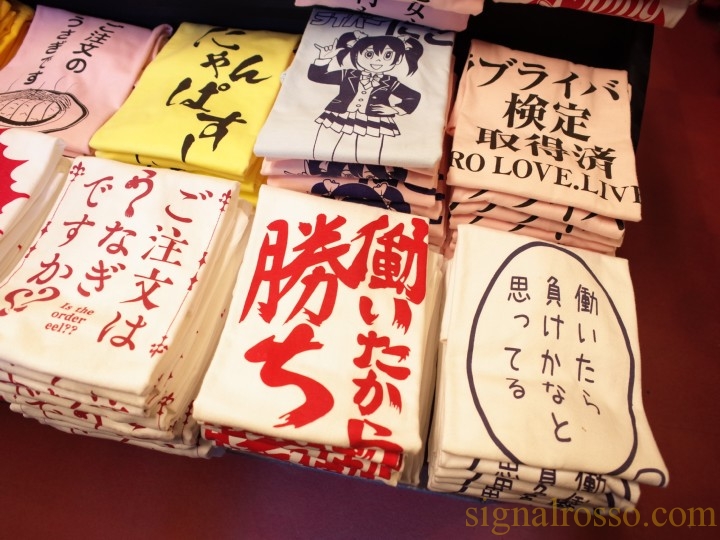 ご注文の
うさぎです
にゃん
ぱすー
ラブライバ
検定
取得済
RO LOVE.LIV
ご注文は
うなぎ
ですか
Is the
order
eel??
働いたから
勝ち
働いたら
負けかなと
思ってる
signalrosso.com